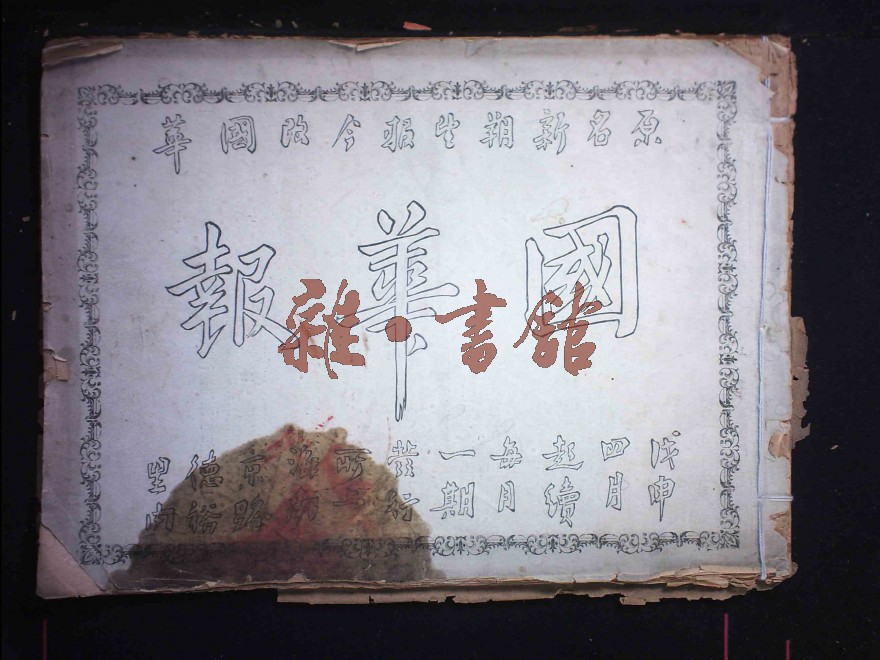 原名新朔望報今改國華
國華報
雜·書館
戊申
四月
起續
每月
一期
發行
所上
海南
京路
德裕
里内